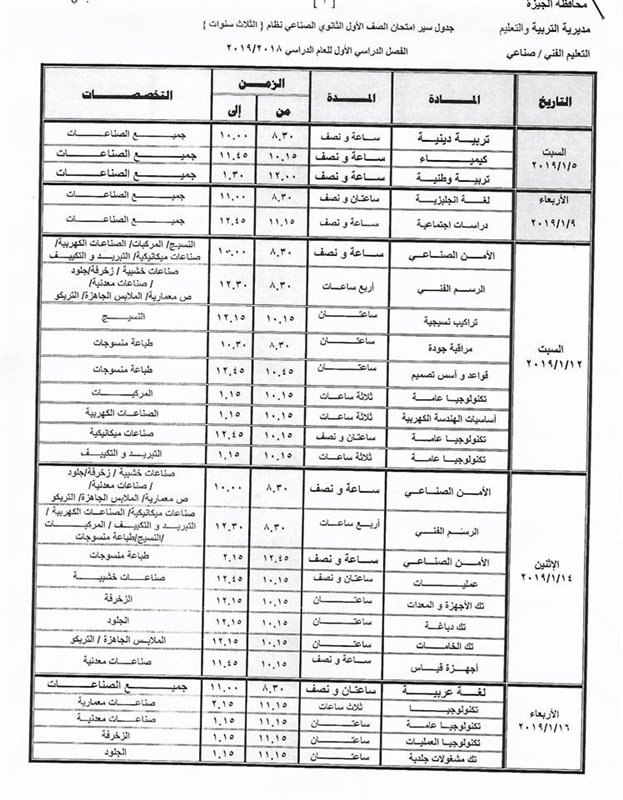 محافظة الجيزة
مديرية التربية والتعليم
التعليم الفني / صناعي
[ ١ ]
جدول سير امتحان الصف الأول الثانوي الصناعي نظام { الثلاث سنوات }
الفصل الدراسي الأول للعام الدراسي ٢٠١٩/٢٠١٨
التاريخ المــادة المــدة الزمــن التخصصــات
من إلى
السبت ٢٠١٩/١/٥
تربيـة دينيـة ساعـة و نصف ٨.٣٠ ١٠.٠٠ جميـع الصناعـات
كيميـاء ساعـة و نصف ١٠.١٥ ١١.٤٥ جميـع الصناعـات
تربيـة وطنيـة ساعـة و نصف ١٢.٠٠ ١.٣٠ جميـع الصناعـات
الأربعاء ٢٠١٩/١/٩
لغـة انجليزيـة ساعتان و نصف ٨.٣٠ ١١.٠٠ جميـع الصناعـات
دراسات اجتماعية ساعـة و نصف ١١.١٥ ١٢.٤٥ جميـع الصناعـات
السبت ٢٠١٩/١/١٢
الأمـن الصنـاعي ساعـة و نصف ٨.٣٠ ١٠.٠٠ النسيج/ المركبات/ الصناعات الكهربية/
صناعات ميكانيكية/ التبريـد و التكييـف
الرسـم الفنـي أربع ساعـات ٨.٣٠ ١٢.٣٠ صناعات خشبية / زخرفة/جلود
/ صناعات معدنية/
ص معمارية/ الملابس الجاهزة/ التريكو
تراكيب نسيجية ساعتـان ١٠.١٥ ١٢.١٥ النسيـج
مراقبة جودة ساعتـان ٨.٣٠ ١٠.٣٠ طباعة منسوجات
قواعد و أسس تصميم ساعتـان ١٠.٤٥ ١٢.٤٥ طباعة منسوجات
تكنولوجيا عامـة ثلاثة ساعـات ١٠.١٥ ١.١٥ المركبـات
أساسيات الهندسة الكهربية ثلاثة ساعـات ١٠.١٥ ١.١٥ الصناعات الكهربية
تكنولوجيا عامـة ساعتـان و نصف ١٠.١٥ ١٢.٤٥ صناعات ميكانيكية
تكنولوجيا عامـة ثلاثة ساعـات ١٠.١٥ ١.١٥ التبريـد و التكييف
الإثنين ٢٠١٩/١/١٤
الأمـن الصنـاعي ساعـة و نصف ٨.٣٠ ١٠.٠٠ صناعات خشبية / زخرفة/جلود
/ صناعات معدنية/
ص معمارية/ الملابس الجاهزة/ التريكو
الرسـم الفنـي أربـع ساعـات ٨.٣٠ ١٢.٣٠ صناعات ميكانيكية/ الصناعات الكهربية /
التبريـد و التكييـف / المركبـات
/النسيج/طباعة منسوجات
الأمـن الصناعـي ساعـة و نصف ١٢.٤٥ ٢.١٥ طباعة منسوجات
عمليـات ساعتـان و نصف ١٠.١٥ ١٢.٤٥ صناعـات خشبيـة
تك الأجهزة و المعدات ساعتـان ١٠.١٥ ١٢.١٥ الزخرفة
تك دباغـة ساعتـان ١٠.١٥ ١٢.١٥ الجلود
تك الخامـات ساعتـان ١٠.١٥ ١٢.١٥ الملابـس الجاهزة / التريكو
أجهـزة قيـاس ساعـة و نصف ١٠.١٥ ١١.٤٥ صناعـات معدنية
الأربعاء ٢٠١٩/١/١٦
لغـة عربيـة ساعتـان و نصف ٨.٣٠ ١١.٠٠ جميـع الصناعـات
تكنولوجيـا ثلاث ساعات ١١.١٥ ٢.١٥ صناعـات معمارية
تكنولوجيـا عامـة ساعتـان ١١.١٥ ١.١٥ صناعـات معدنيـة
تكنولوجيا العمليات ساعتـان ١١.١٥ ١.١٥ الزخرفة
تك مشغولات جلدية ساعتـان ١١.١٥ ١.١٥ الجلود